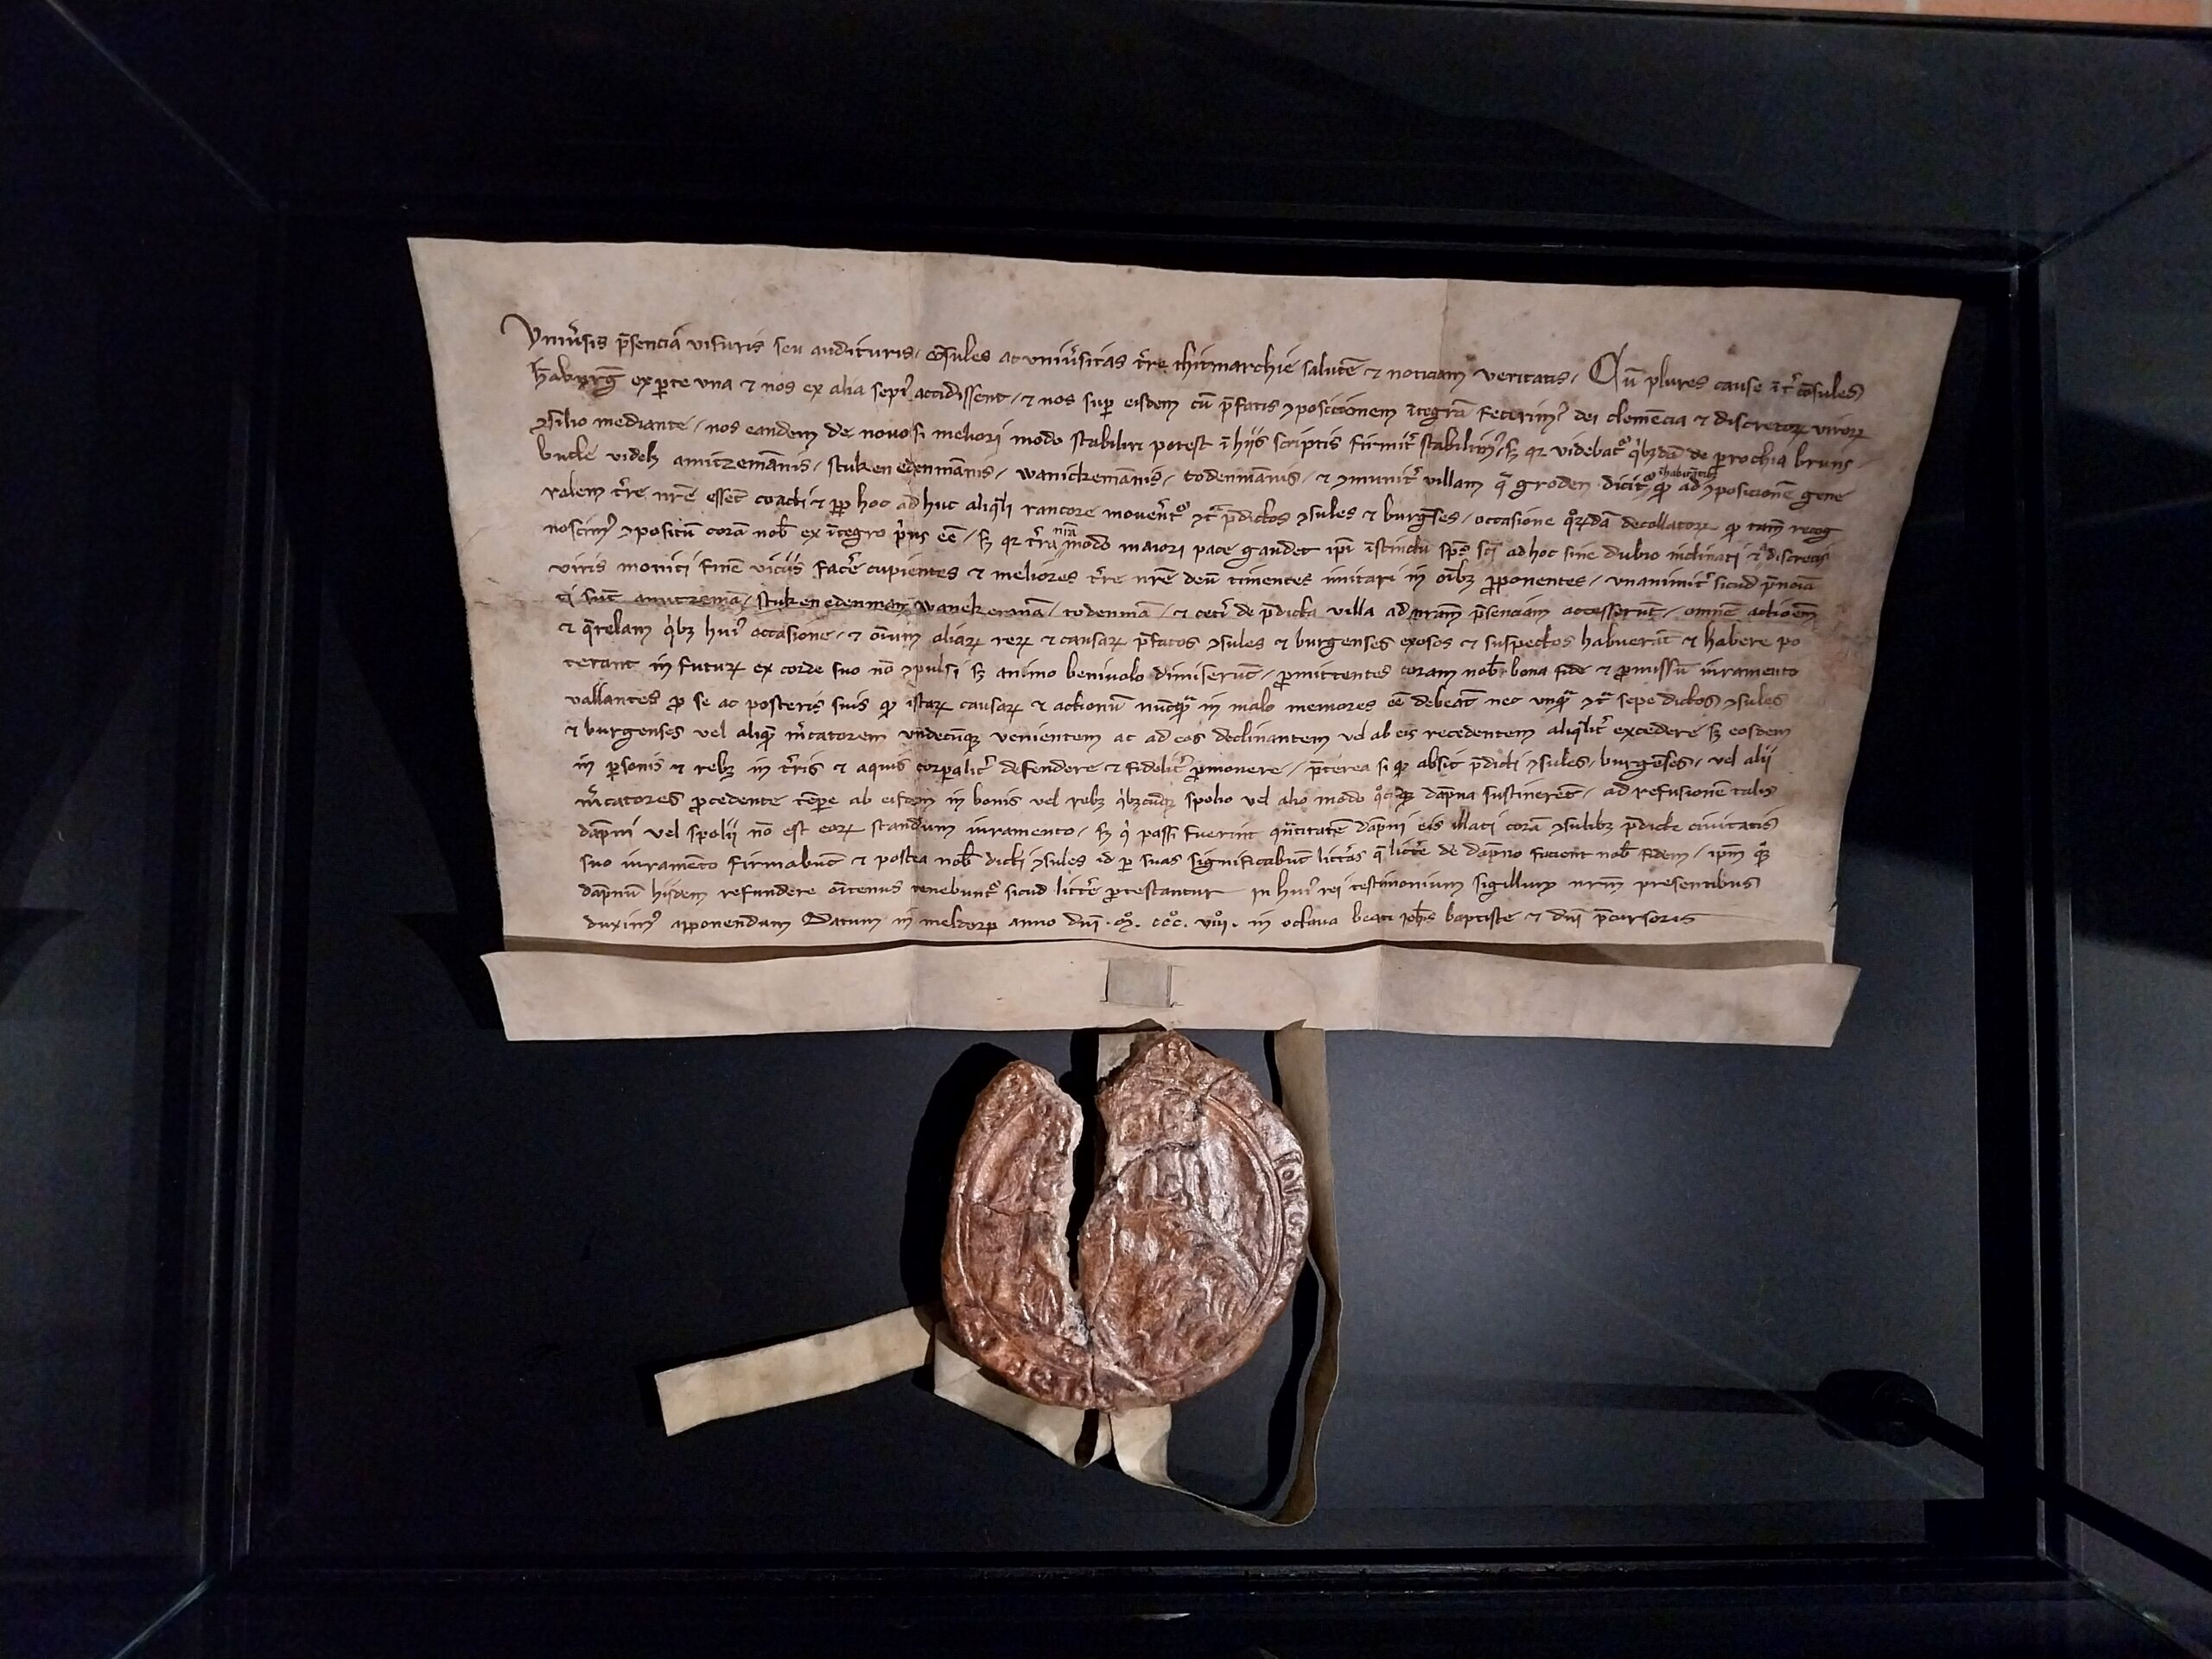 Vniu̾sis p̄sencia visuris seu audituris, ꝯsules ac vniu̾sitas t̾re thitmarchie salutē ⁊ noticiam veritatis, Cū plures cause īt̾ ꝯsules
hāburḡ ex ꝑte vna ⁊ nos ex alia sepi⁹ accidissent, ⁊ nos suꝑ eisdem cū p̄fatis ꝯposicionem ītegrā fecerim⁹ dei clemēcia ⁊ discretoꝝ viroꝝ
ꝯsilio mediante, nos eandem de novo si meliori modo stabiliri potest ī hijs scriptis firmit̾ stabilim⁹, sꝫ qꝛ videbat᷑ qͥbꝫdā de ꝑrochia bruns
butle videlꝫ amitzemānis, stuken edenmānis, wanickemānis, todenmānis, ⁊ ꝯmunit̾ villam q̄ groden dicit᷑ ꝙ ad ꝯposicionē gene
ralem t̾re nr̄e essent coacti ⁊ ꝓp hoc adhuc aliqͣli rancore mouēnt᷑ ꝯt̄ p̄dictos ꝯsules ⁊ burgēses, occasione qͦrꝫdā decollatoꝝ ꝙ tam̄ recog
noscim⁹ ꝯpositū corā nob̄ ex ītegro pͥus eē, sꝫ qꝛ t̾ra nr̄a modo maiori pace gaudet ip̄i īstinctu sp̄s sc̄i ad hoc sine dubio inclinati ⁊ discretis
viris moniti finē viciis fac̾e cupientes ⁊ meliores t̾re nr̄e deū timentes imitari in oībꝫ ꝓponentes, vnanimit̾ sicud p̄noīa
ti sūt amitzemā, stuken edenman wanekemā, todenmā, ⁊ cet̾i de p̄dicta villa ad nr̄am p̄senciam accesserūt, omnē actioēm
⁊ q̄relam qͥbꝫ hui⁹ occasione, ⁊ oīum aliaꝝ reꝝ ⁊ causaꝝ p̄fatos ꝯsules ⁊ burgenses exosos ⁊ suspectos habuerāt ⁊ habere po
terant in futuꝝ ex corde suo nō ꝯpulsi sꝫ animo beniuolo dimiserūt, ꝓmittentes coram nob̄ bona fide ⁊ ꝓmissū iuramento
vallantes ꝓ se ac posteris suis ꝙ istaꝝ causaꝝ ⁊ actionū nūcqͣ in malo memores eē debeāt nec vnqͣ ꝯt̄ sepe dictos ꝯsules
⁊ burgenses vel aliquē m̾catorem vndecūqꝫ venientem ac ad eos declinantem vel ab eis recedentem aliqͣlit̾ excedere sꝫ eosdem
in ꝑsonis ⁊ rebꝫ in t̾ris ⁊ aquis corꝑalit̾ defendere ⁊ fidelit̾ ꝓmouere, p̄terea si ꝙ absit p̄dicti ꝯsules, burgēses, vel alij
m̾catores ꝓcedente tēpe ab eisdem in bonis vel rebꝫ qͥbꝫcūqꝫ spolio vel alio modo dāpna sustinerēt, ad refusionē talis
dāpni vel spolij nō est eoꝝ standum iuramento, sꝫ qͥ passi fuerint qͣntitatē dāpni eis illati corā ꝯsulibꝫ p̄dicte ciuitatis
suo iuramēto firmabūt ⁊ postea nob̄ dicti ꝯsules id ꝑ suas significabūt litt̾as q̄ litt̾e de dāpno facient nob̄ fidem, ip̄m
dāpnū hijsdem refundere tenebunt᷑ sicud litt̾e ꝓtestantur In hui⁹ rei testimonium sigillum nr̄m presentibus
duxim⁹ apponendum Datum in meldorp anno dn̄i . mͦ. cccͦ. viijͦ. in octaua beati ioh̄is baptiste ⁊ dn̄i p̄cursoris